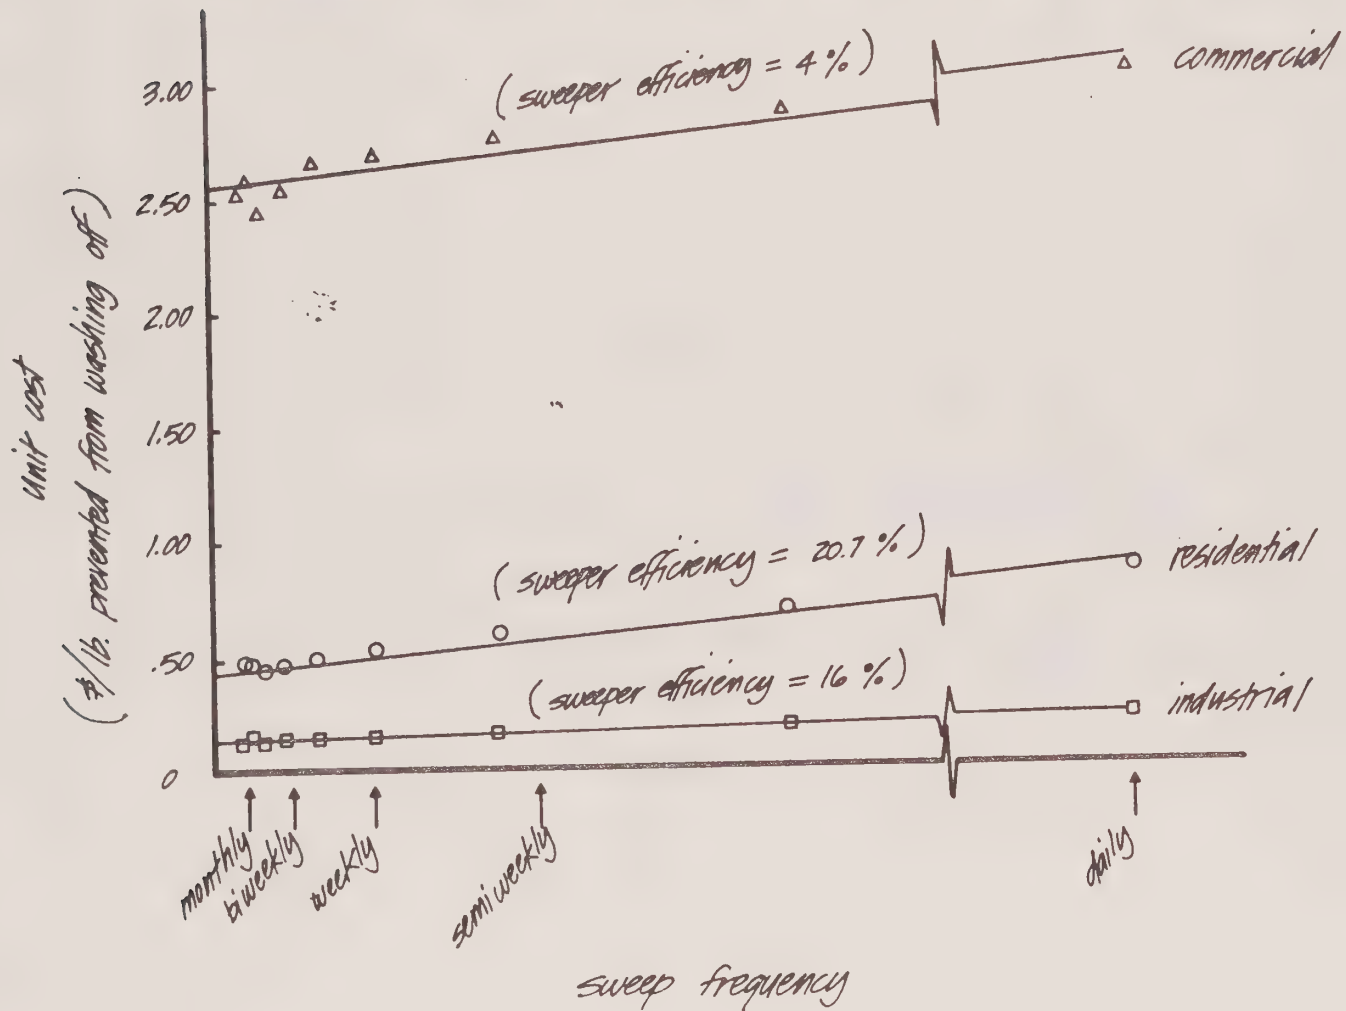 3.00
2.50
2.00
1.50
1.00
.50
0
Unit cost
($/lb. prevented from washing off)
(sweeper efficiency = 4 %)
commercial
(sweeper efficiency = 20.7 %)
residential
(sweeper efficiency = 16 %)
industrial
monthly
biweekly
weekly
semiweekly
daily
sweep frequency